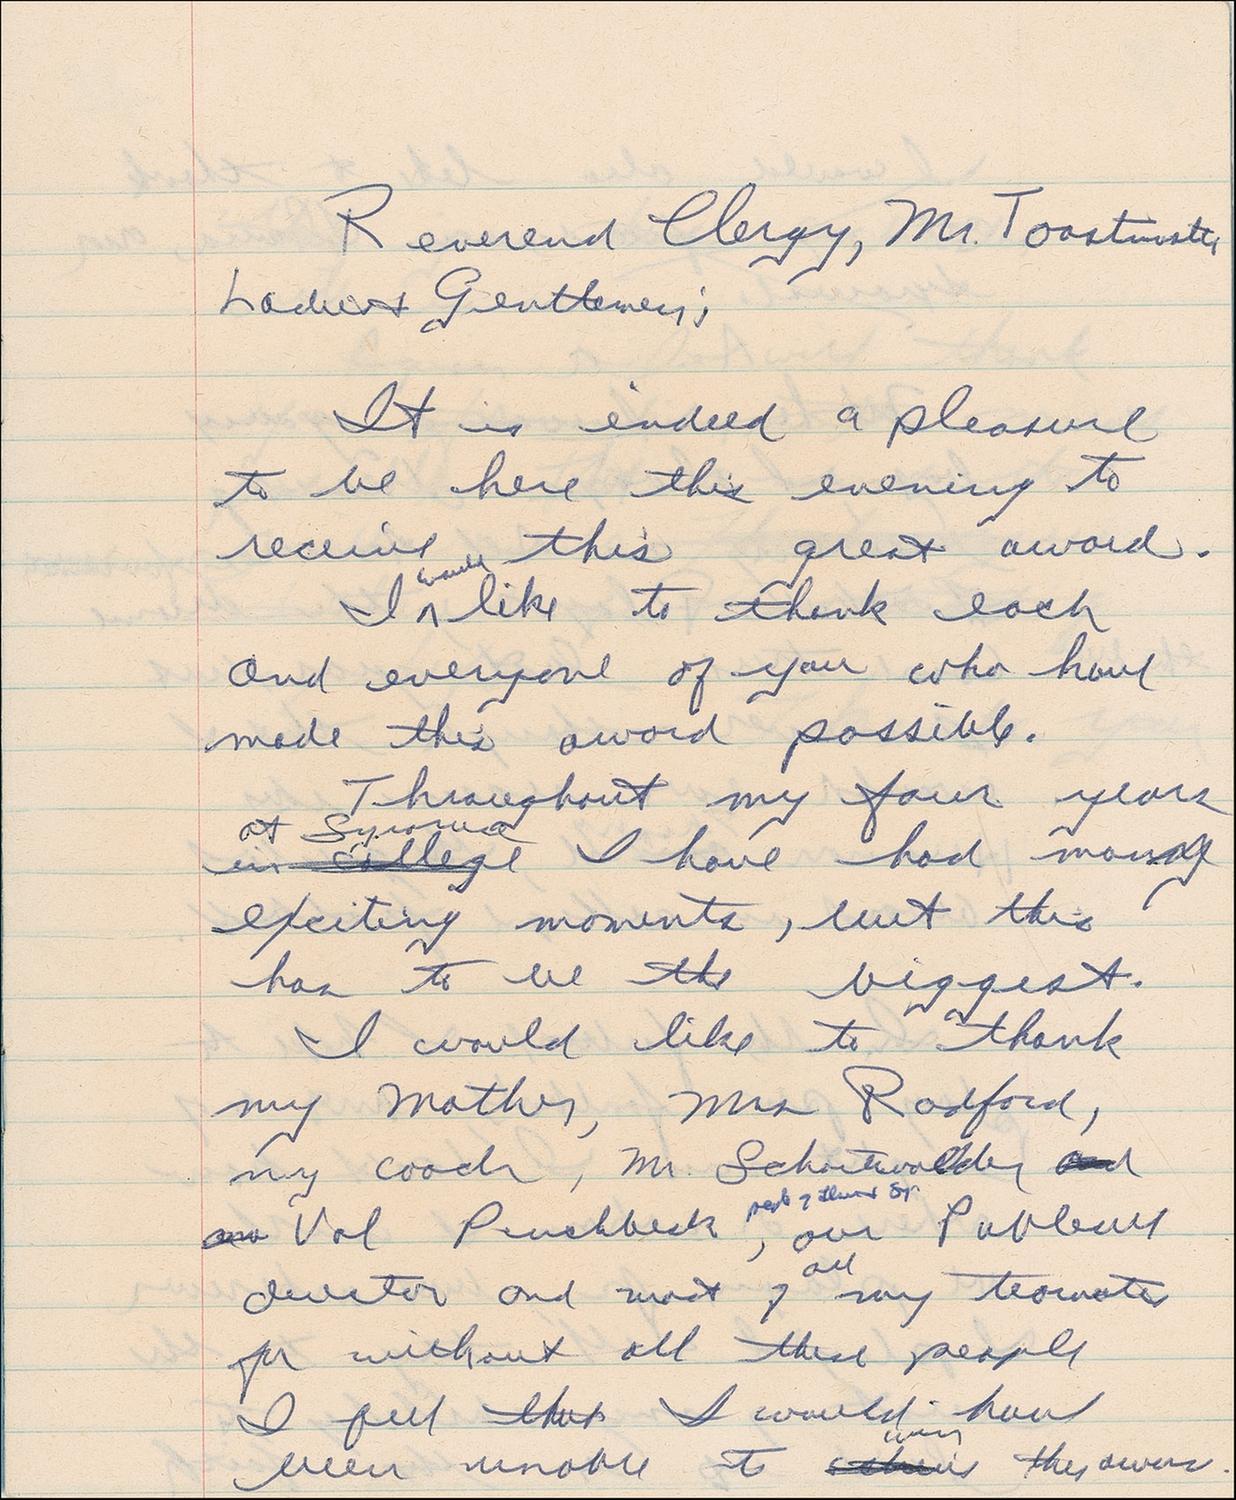 Reverend Clergy, Mr. Toastmaster,
Ladies & Gentlemen;
It is indeed a pleasure
to be here this evening to
receive this great award.
would
I ^ like to thank each
and everyone of you who have
made this award possible.
Throughout my four years
at Syracuse
in college I have had many
exciting moments, but this
has to be the biggest.
I would like to thank
my Mother, Mrs Radford,
my coach, Mr. Schwartzwalder, and
Val Pinchbeck, our Publicity
director and most of all my teammates
for without all these people
I feel that I would have
win
been unable to this award.